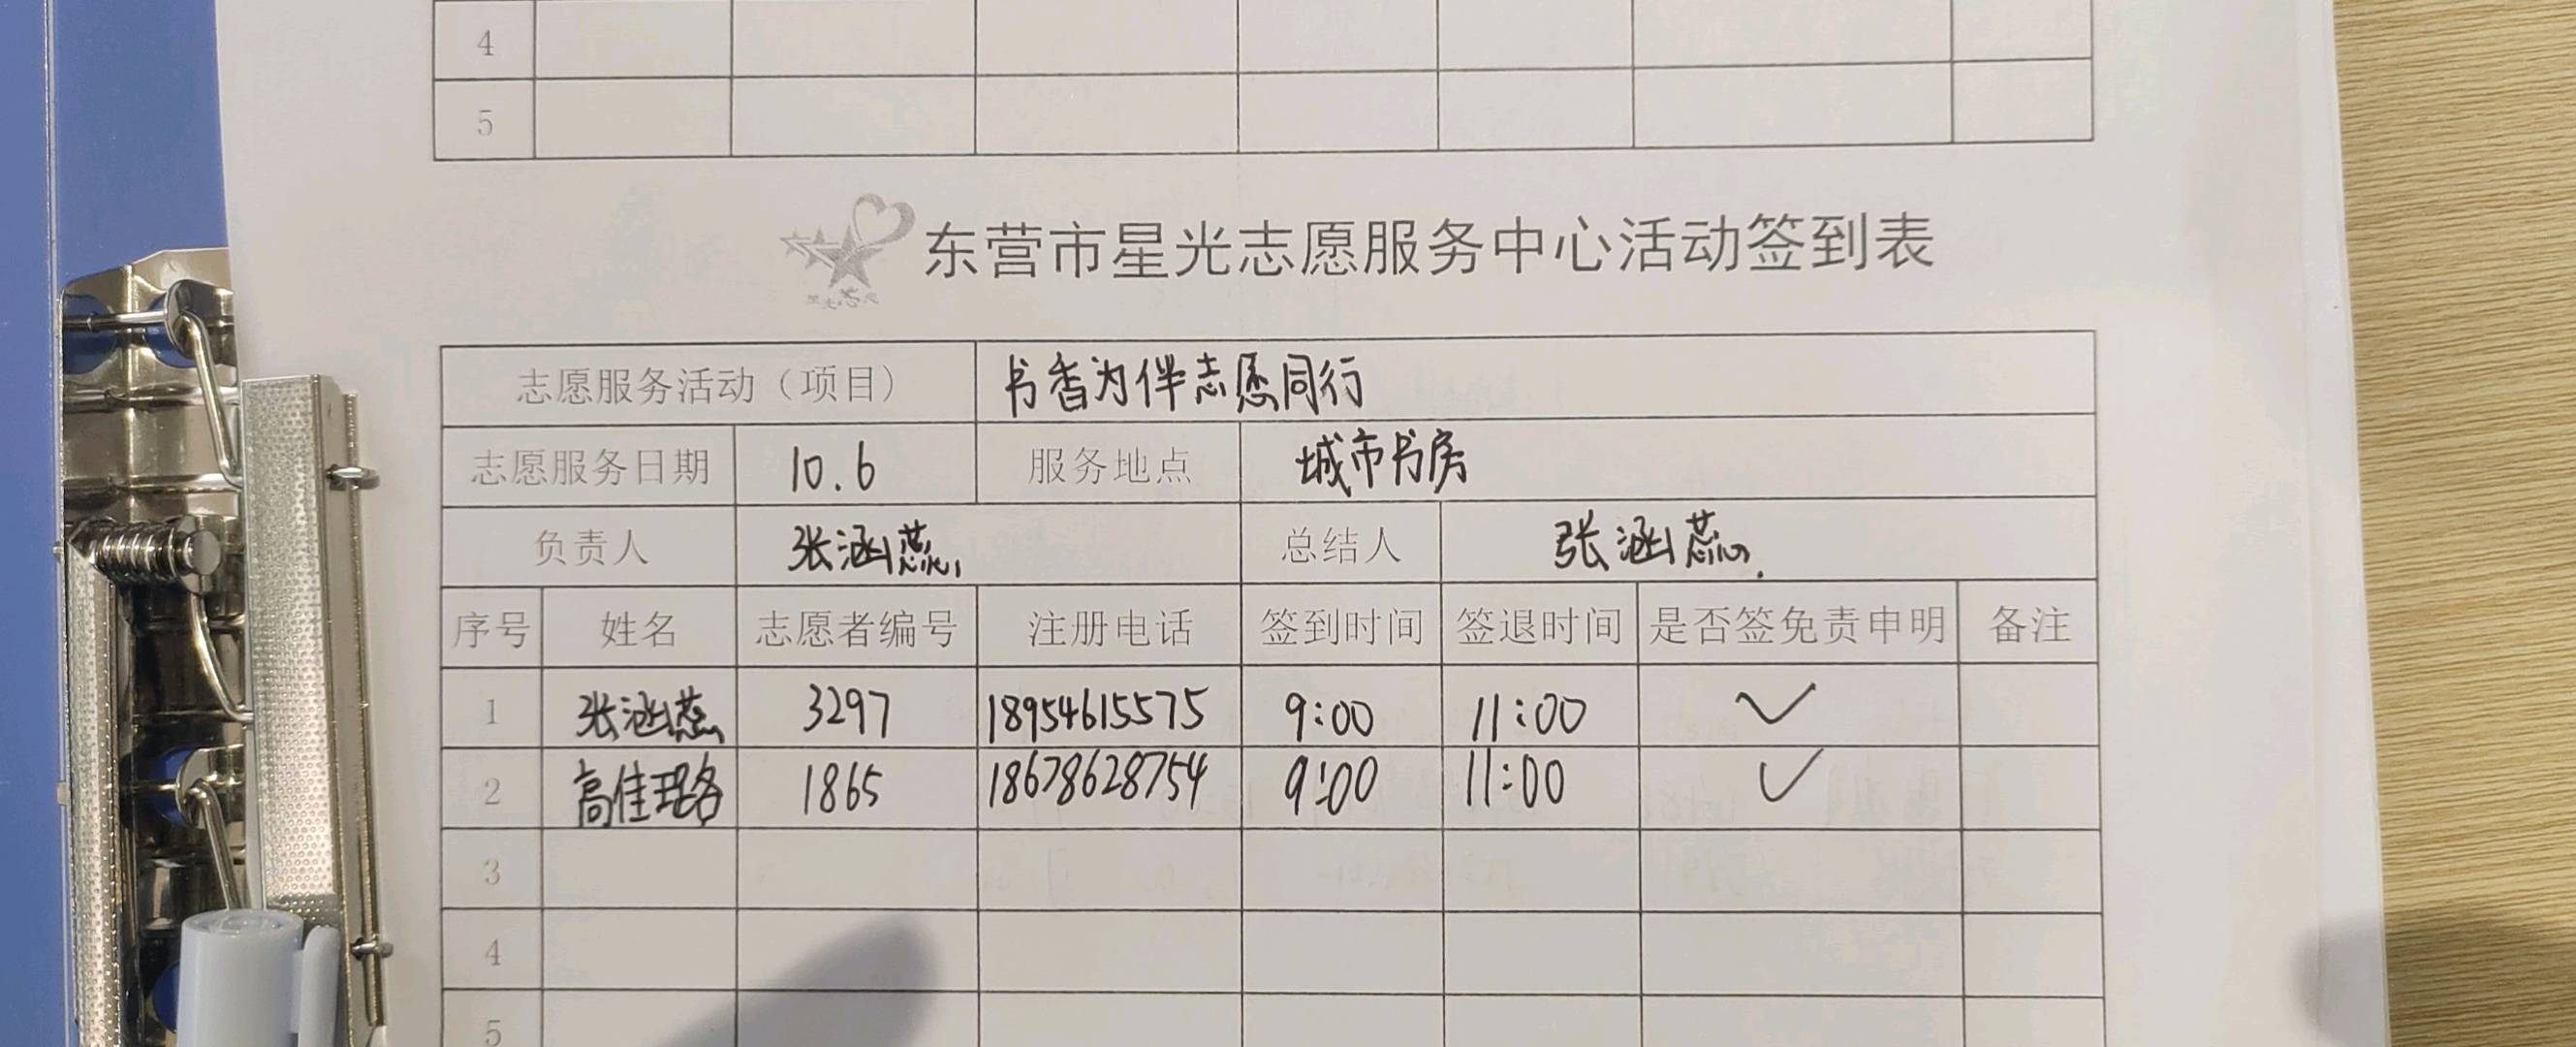 4
5
东营市星光志愿服务中心活动签到表
志愿服务活动（项目） 书香为伴志愿同行
志愿服务日期 10.6 服务地点 城市书房
负责人 张涵蕊 总结人 张涵蕊
序号 姓名 志愿者编号 注册电话 签到时间 签退时间 是否签免责申明 备注
1 张涵蕊 3297 18954615575 9:00 11:00 ✓
2 高佳珞 1865 18678628754 9:00 11:00 ✓
3
4
5